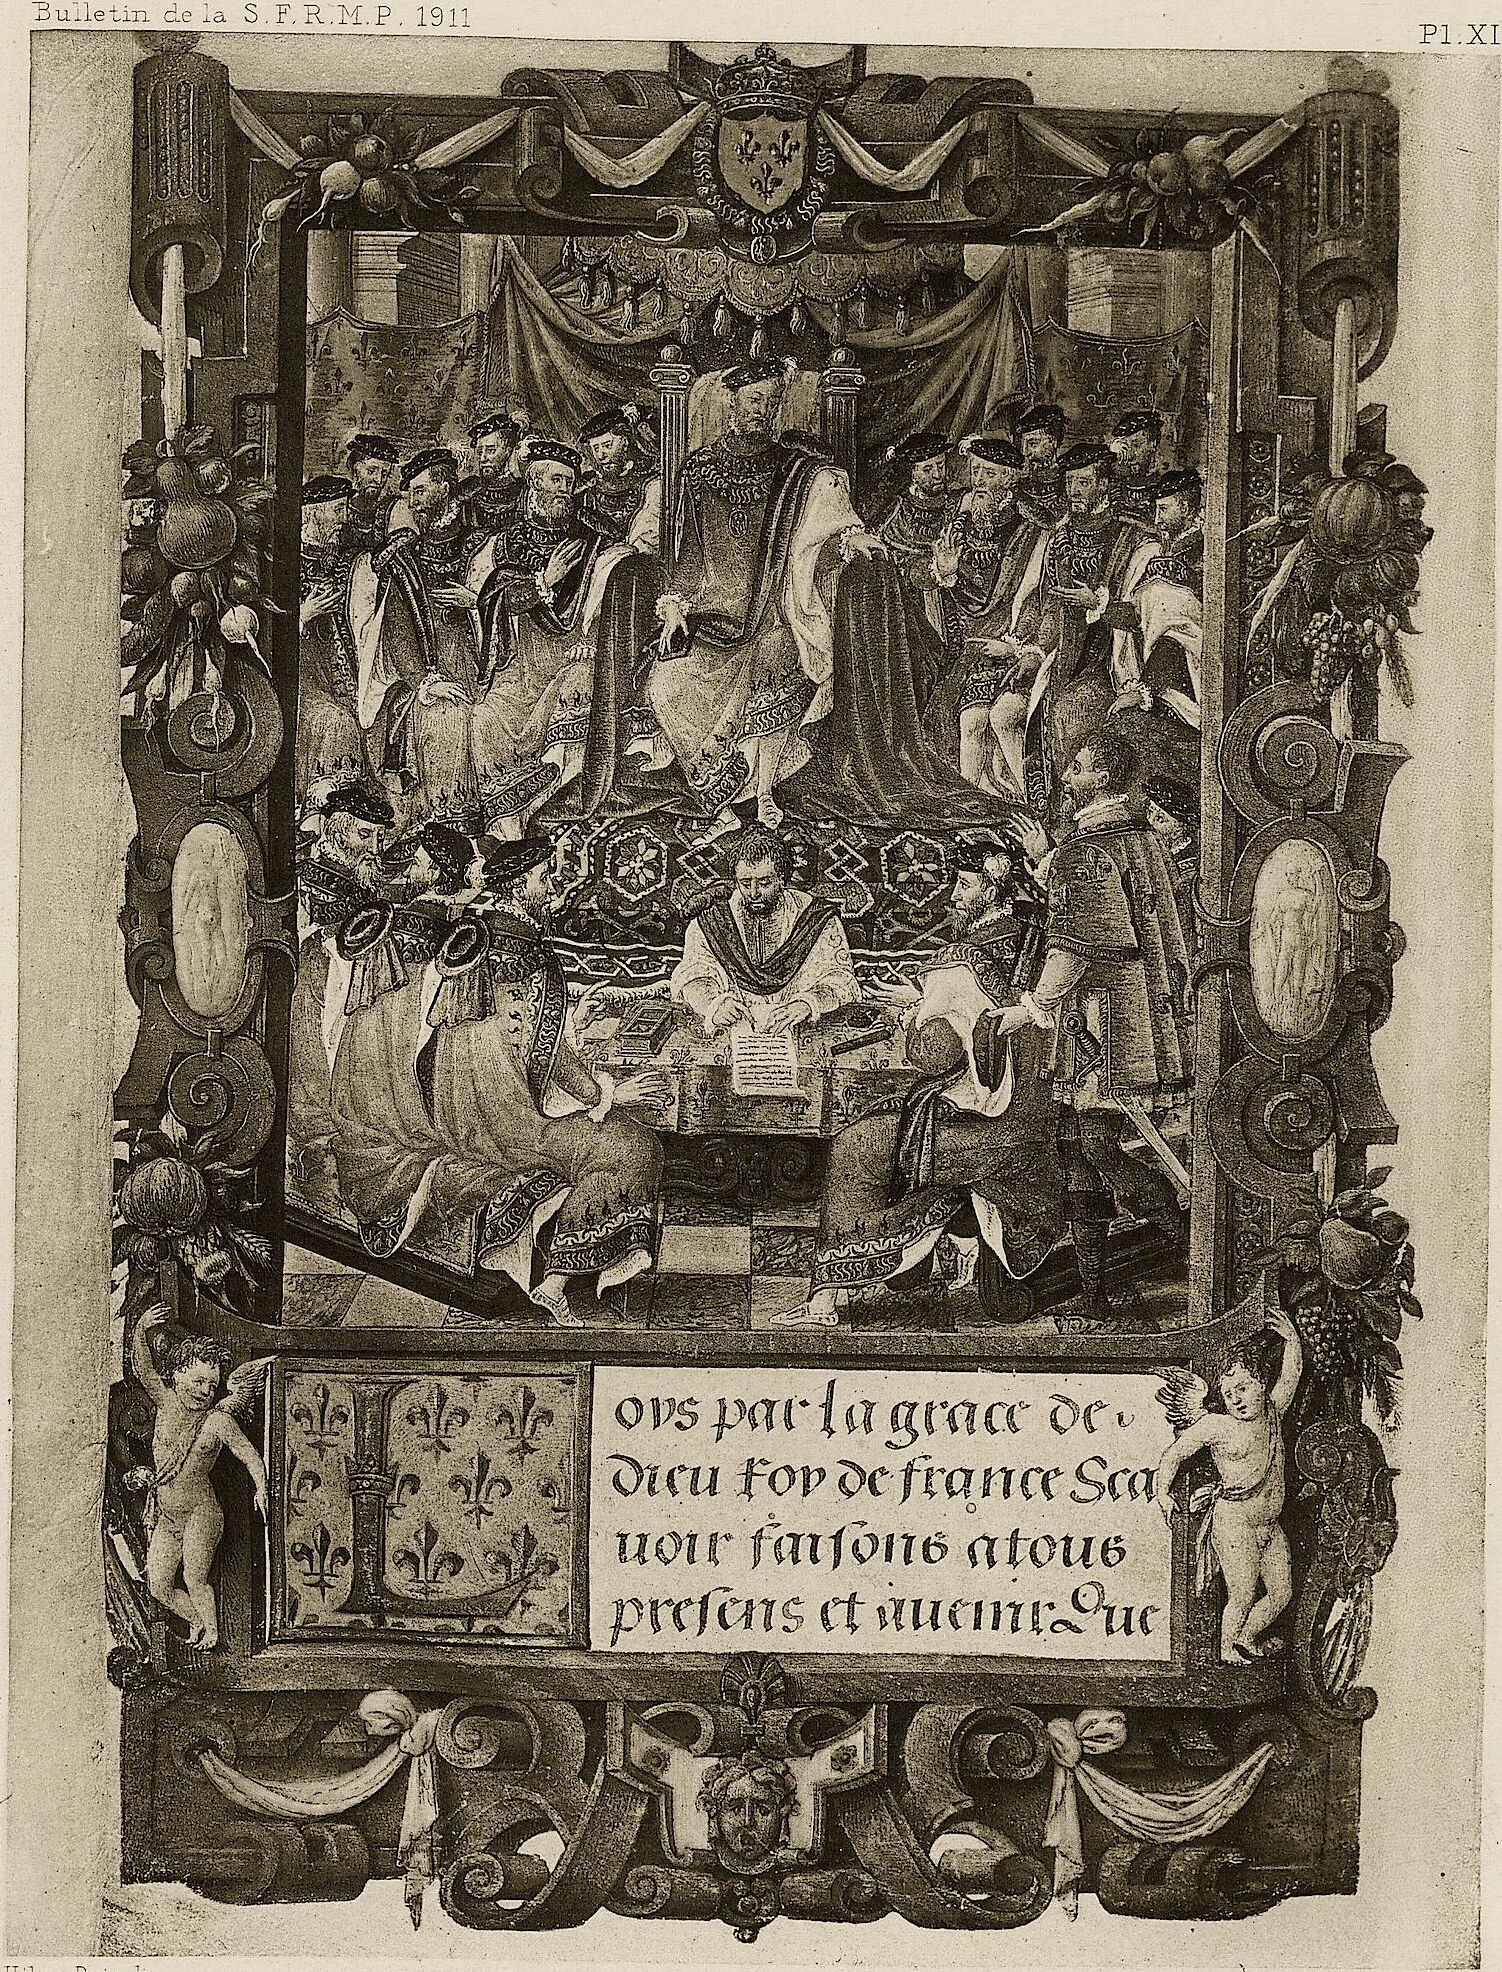 Bulletin de la S.F.R.M.P. 1911
Pl. XI
Loys par la grace de
dieu Roy de france Sca
uoir faisons a tous
presens et auenir Que